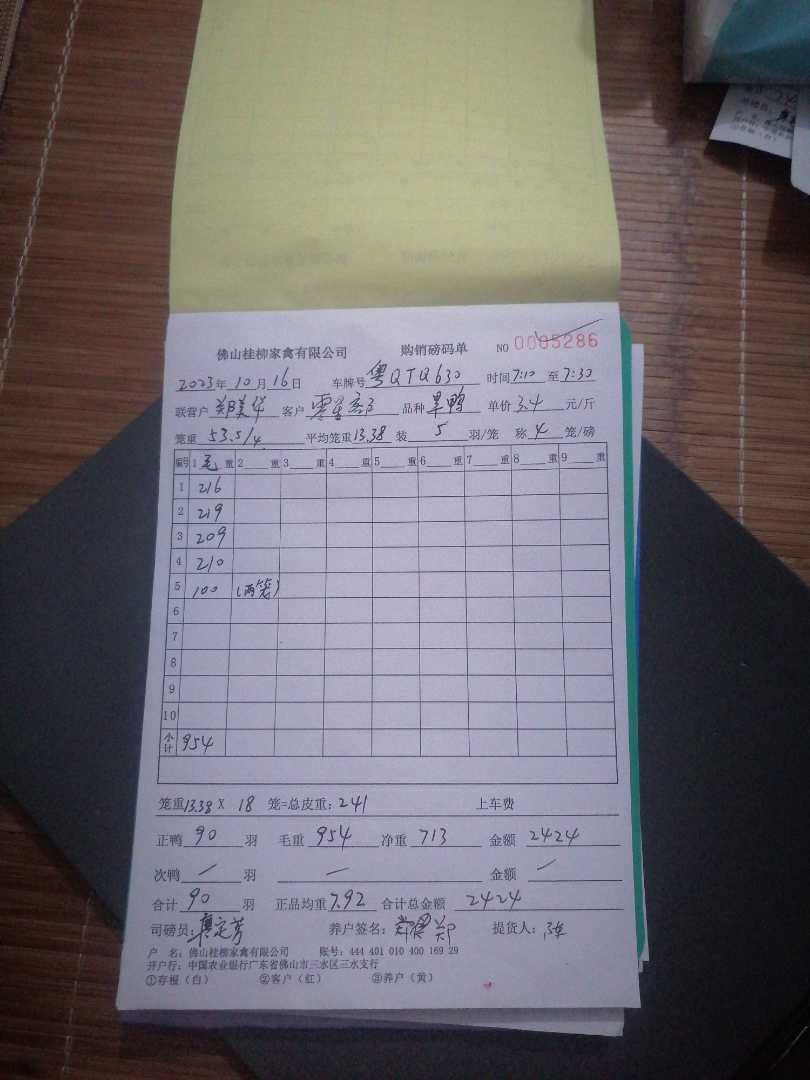 佛山桂柳家禽有限公司 购销磅码单 NO 0005286
2023年10月16日 车牌号粤QTQ630 时间7:10至7:30
联营户 郑美华 客户 零星客户 品种 旱鸭 单价3.4元/斤
笼重 53.5/4 平均笼重13.38 装 5 羽/笼 称 4 笼/磅
编号 1毛重 2 重 3 重 4 重 5 重 6 重 7 重 8 重 9 重
1 216
2 219
3 209
4 210
5 100 (两笼)
6
7
8
9
10
小计 954
笼重13.38 X 18 笼=总皮重:241 上车费
正鸭 90 羽 毛重 954 净重 713 金额 2424
次鸭 / 羽 / 金额 /
合计 90 羽 正品均重7.92 合计总金额 2424
司磅员: 养户签名: 提货人:
户 名:佛山桂柳家禽有限公司 账号:444 401 010 400 169 29
开户行:中国农业银行广东省佛山市三水区三水支行
①存根(白) ②客户(红) ③养户(黄)